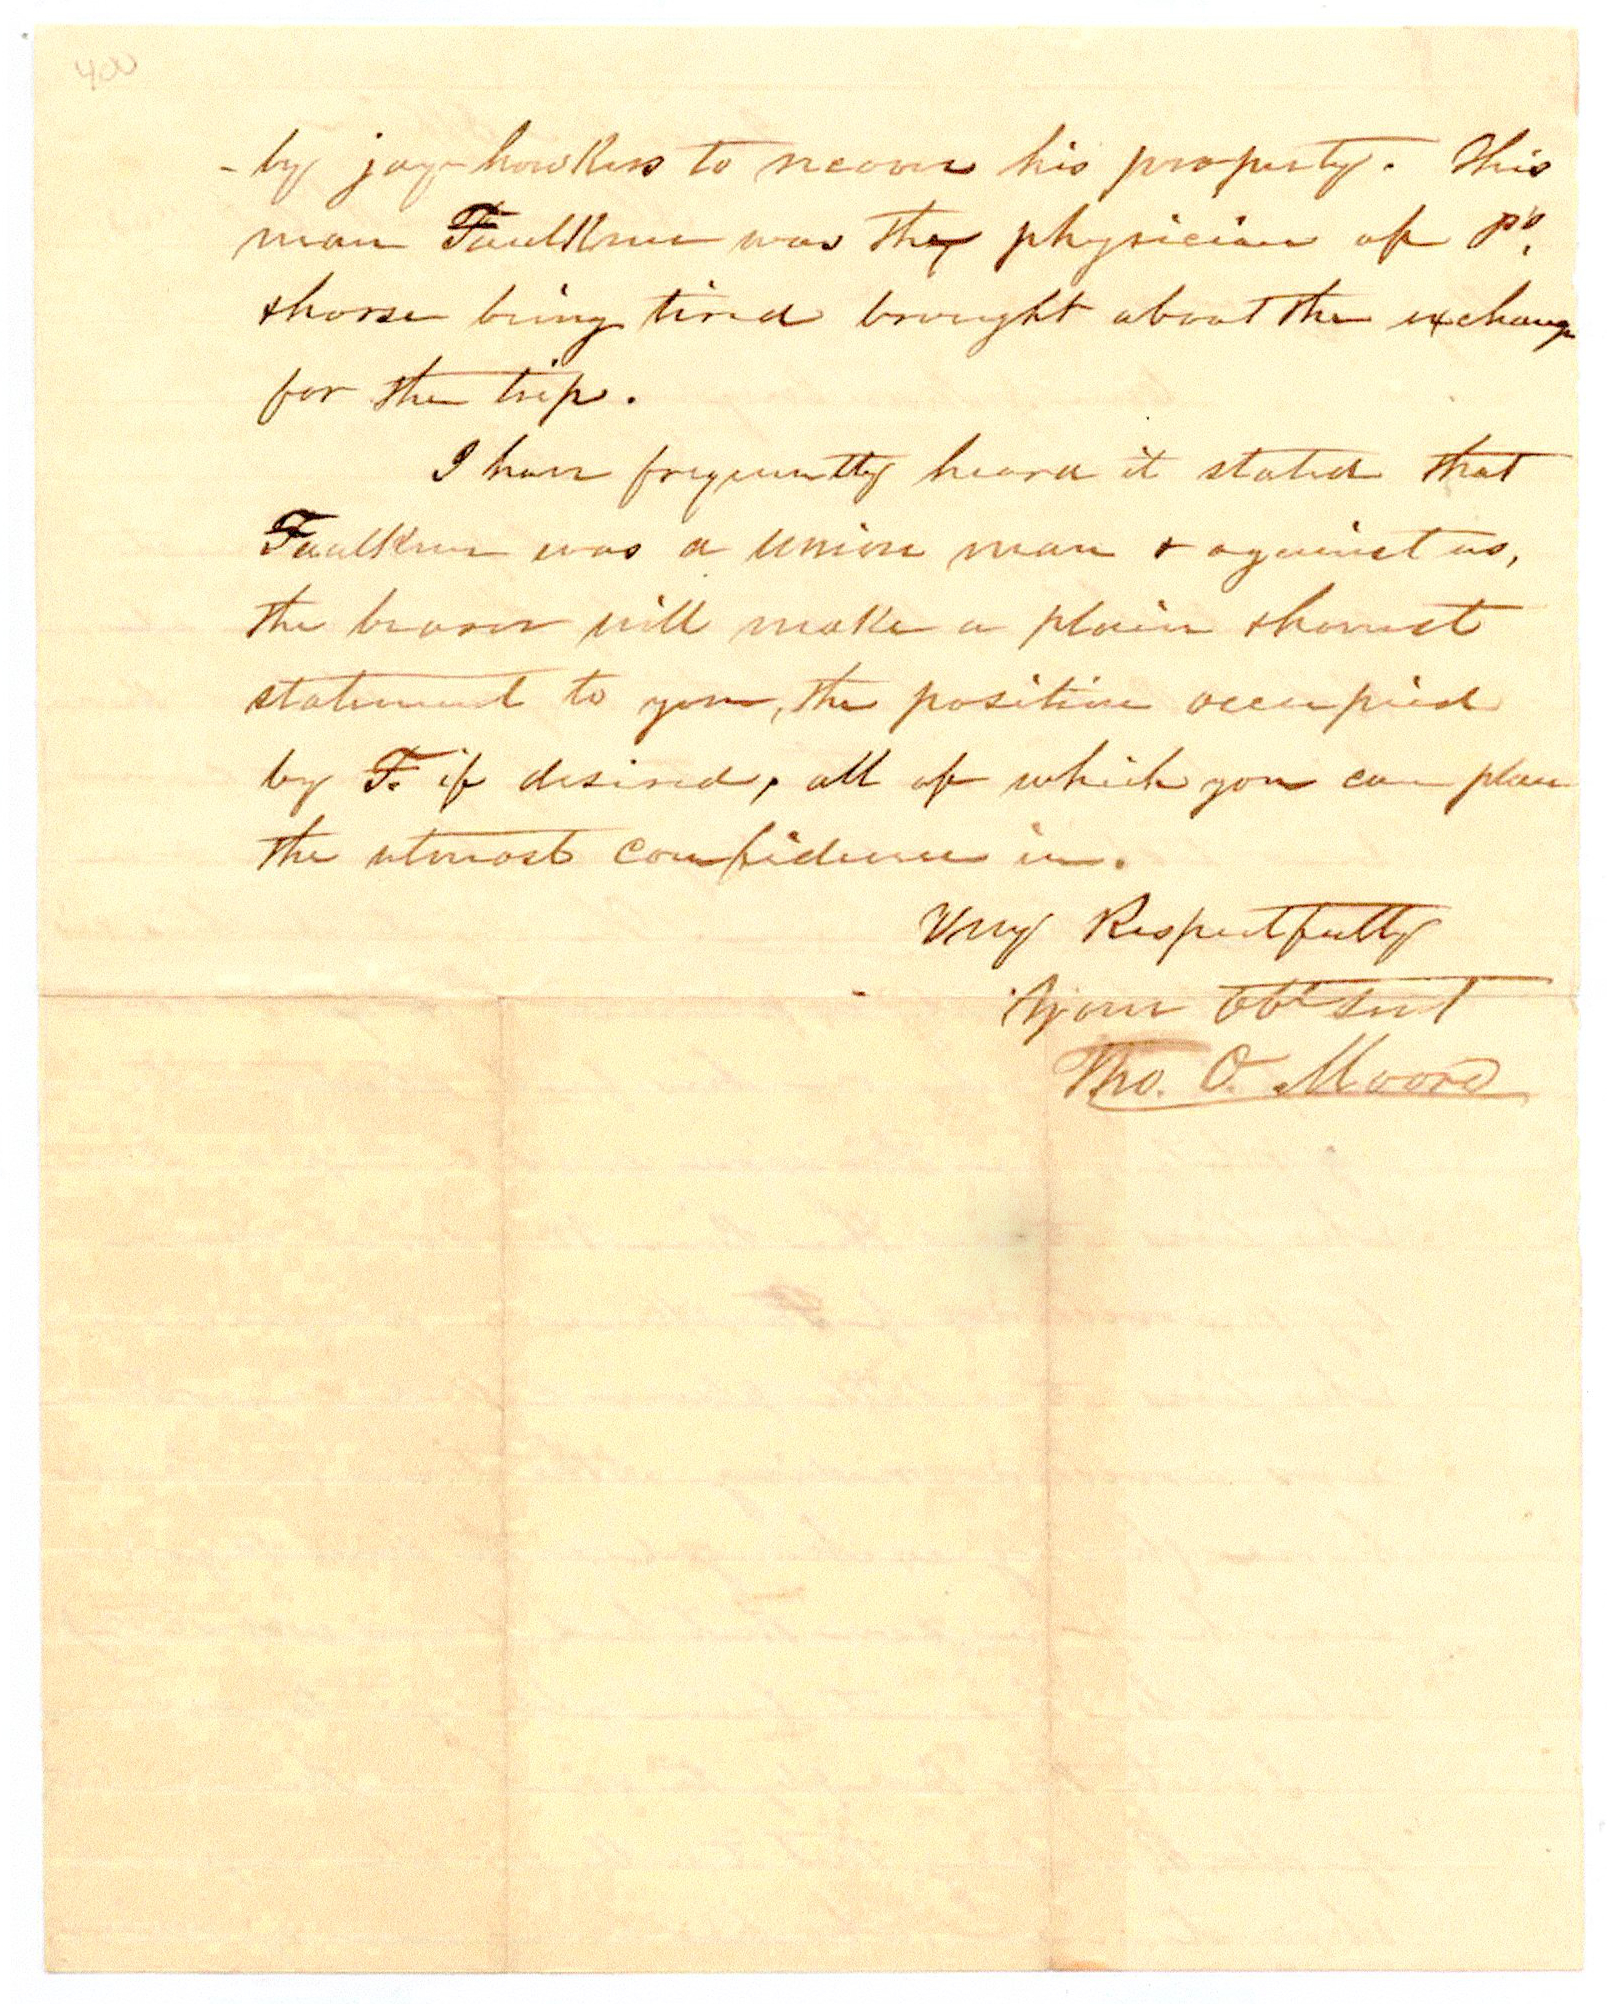 by jay-hawkers to recover his property. This
man Faulkner was the physician of P's.
& horse being tired brought about the exchange
for the trip.
I have frequently heard it stated that
Faulkner was a Union man & against us,
the bearer will make a plain & honest
statement to you, the position occupied
by F. if desired, all of which you can place
the utmost confidence in.
Very Respectfully
Your Obt Servt
Tho. O. Moore